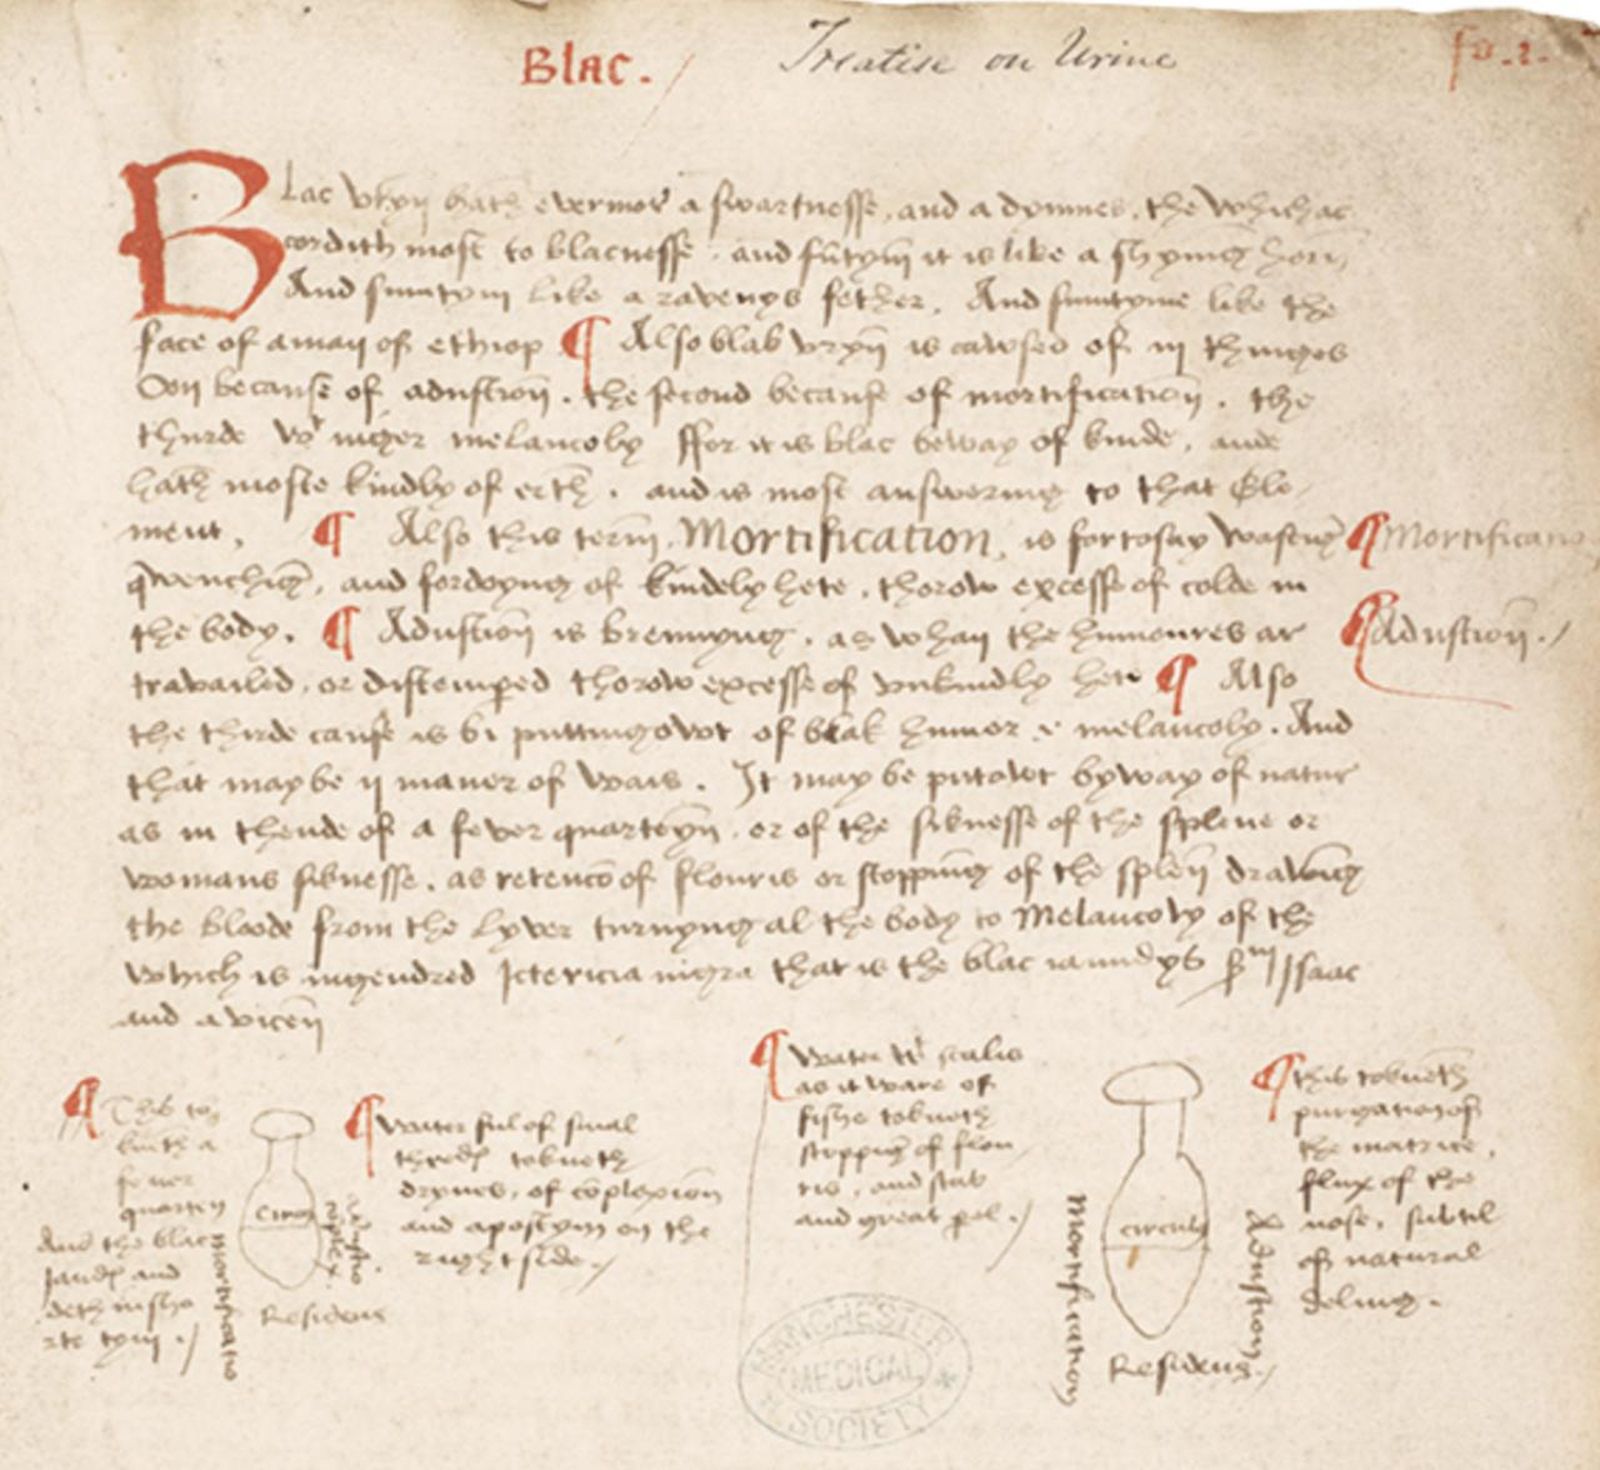 Blac. /
Treatise on Urine
fo. 2.
Blac vryn hath evermor a swartnesse, and a dymnes, the which ac
cordith most to blacnesse . and sūtym it is like a shynīg horn
And sumtym like a ravenys fether. And sumtyme like the
face of a man of ethiop ¶ Also blak vryn̄ is cawsed of iij thinges
Oon because of adustion̄ . the second because of mortification̄ . the
thirde wt niger melancoly ffor it is blac beway of kinde, ande
hath moste kindly of erth . and is most answering to that Ele
ment, ¶ Also this term̄ Mortification, is for to say wasting
qwenching, and fordoyng of kindely hete . thorow excesse of colde in
the body. ¶ Adustion̄ is brennyng . as whan the humoures ar
travailed . or distemꝑed thorow excesse of vnkindly hete ¶ Also
the thirde cause is bi putting owt of blak humor . melancoly . And
that may be ij maner of wais . It may be put owt by way of natur
as in thende of a fever quarteyn . or of the siknesse of the splene or
womans siknesse . as retencō of flouris or stoppīng of the splen̄ drawīng
the bloode from the lyver turnyng al the body to Melancoly of the
which is ingendred Ictericia nigra that is the blac iaundys Isaac
and avicen̄
¶ Mortificatio
¶ Adustion̄ . /
¶ This to
kinth a
fever
quarten
And the blac
Jandꝭ and
deth in sho
rte tym . /
mortificatio
Circu
Adustio
Residens
¶ Water ful of smal
thredꝭ tokneth
drynes, of cōplexion
and apostym on the
right side . /
¶ Water wt scalis
as it ware of
fishe tokneth
stoppīg of flou
ris, and scab
and great . /
Mortification
circulꝰ
Adustion
Residens . /
¶ This tokneth
purgation of
the matrice,
flux of the
nose, subtil
of natural
deling .
MANCHESTER
MEDICAL
SOCIETY